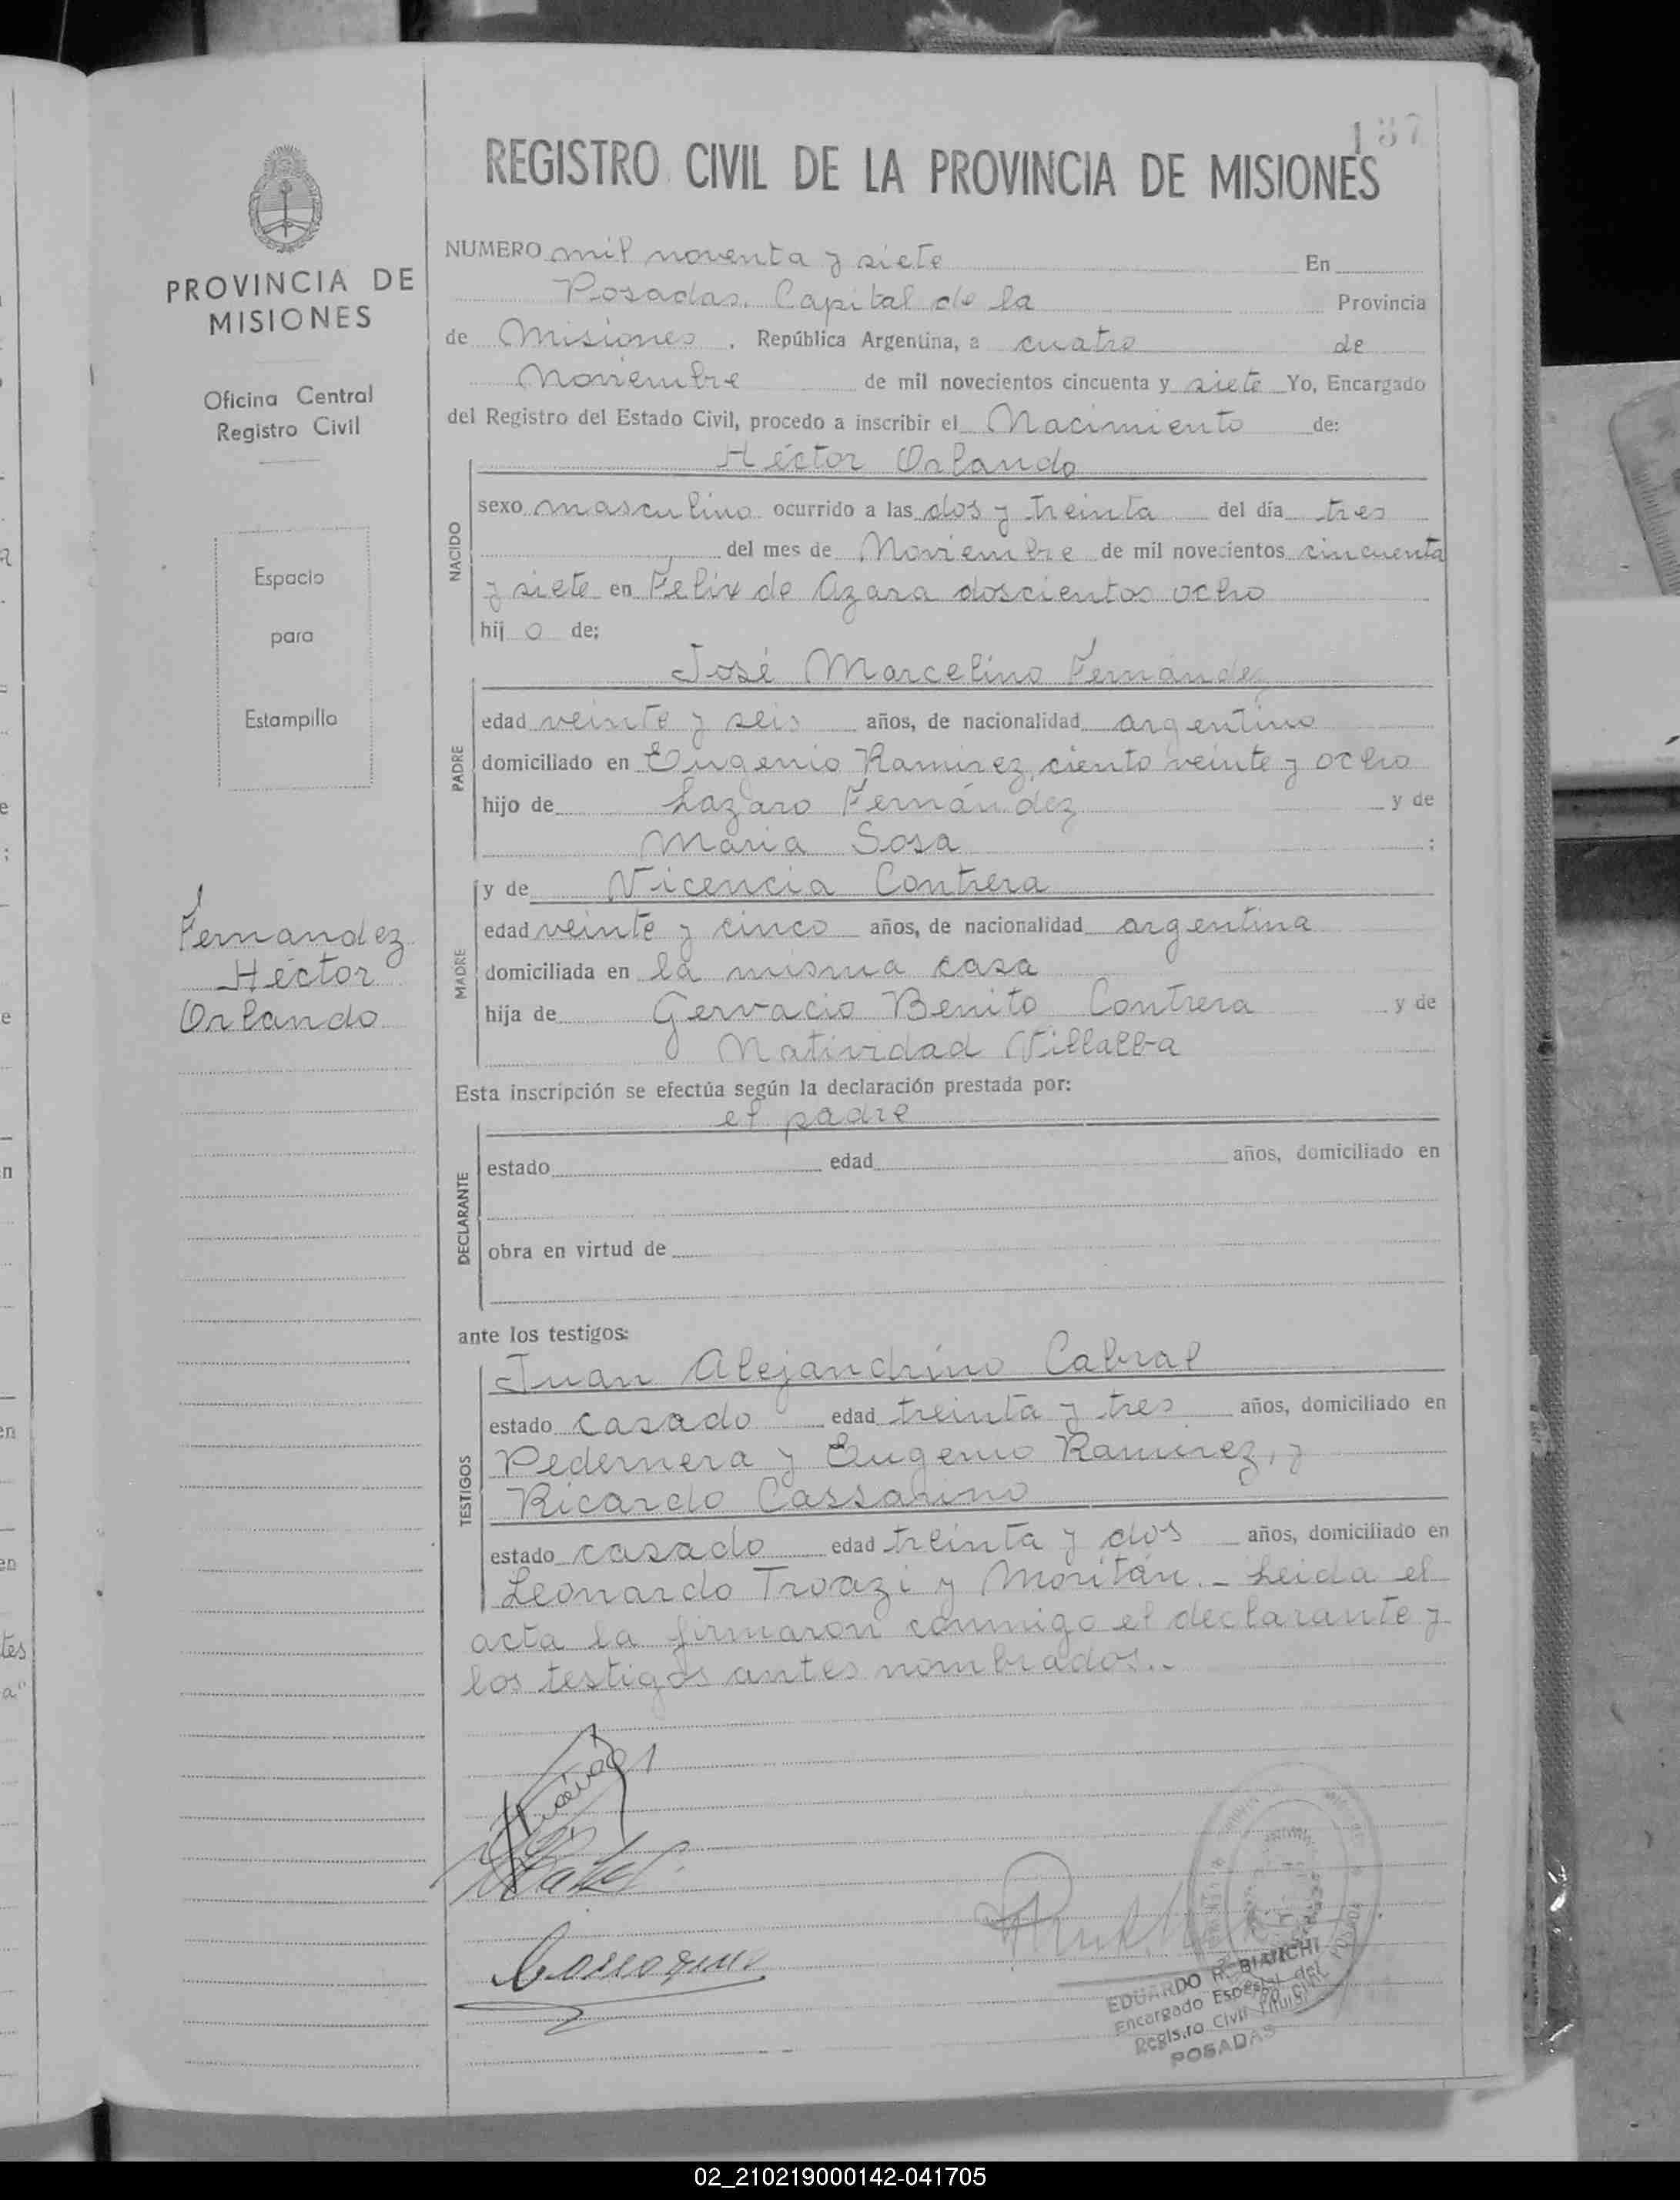 187
REGISTRO CIVIL DE LA PROVINCIA DE MISIONES
PROVINCIA DE
MISIONES
Oficina Central
Registro Civil
Espacio
para
Estampilla
Fernandez
Héctor
Orlando
NUMERO mil noventa y siete En
Posadas. Capital de la Provincia
de Misiones . República Argentina, a cuatro de
Noviembre de mil novecientos cincuenta y siete Yo, Encargado
del Registro del Estado Civil, procedo a inscribir el Nacimiento de:
Héctor Orlando
NACIDO
sexo masculino ocurrido a las dos y treinta del día tres
del mes de Noviembre de mil novecientos cincuenta
y siete en Felix de Azara doscientos ocho
hij o de;
José Marcelino Fernández
PADRE
edad veinte y seis años, de nacionalidad argentino
domiciliado en Eugenio Ramirez, ciento veinte y ocho
hijo de Lazaro Fernández y de
Maria Sosa ;
y de Vicencia Contrera
MADRE
edad veinte y cinco años, de nacionalidad argentina
domiciliada en la misma casa
hija de Gervacio Benito Contrera y de
Natividad Villalba
Esta inscripción se efectúa según la declaración prestada por:
el padre
DECLARANTE
estado edad años, domiciliado en
obra en virtud de
ante los testigos:
Juan Alejandrino Cabral
TESTIGOS
estado casado edad treinta y tres años, domiciliado en
Pedernera y Eugenio Ramirez, y
Ricardo Cassarino
estado casado edad treinta y dos años, domiciliado en
Leonardo Troazi y Moritán. - Leida el
acta la firmaron conmigo el declarante y
los testigos antes nombrados.-
EDUARDO R. BIANCHI
Encargado Especial del
Regis.ro Civil
POSADAS
02_210219000142-041705